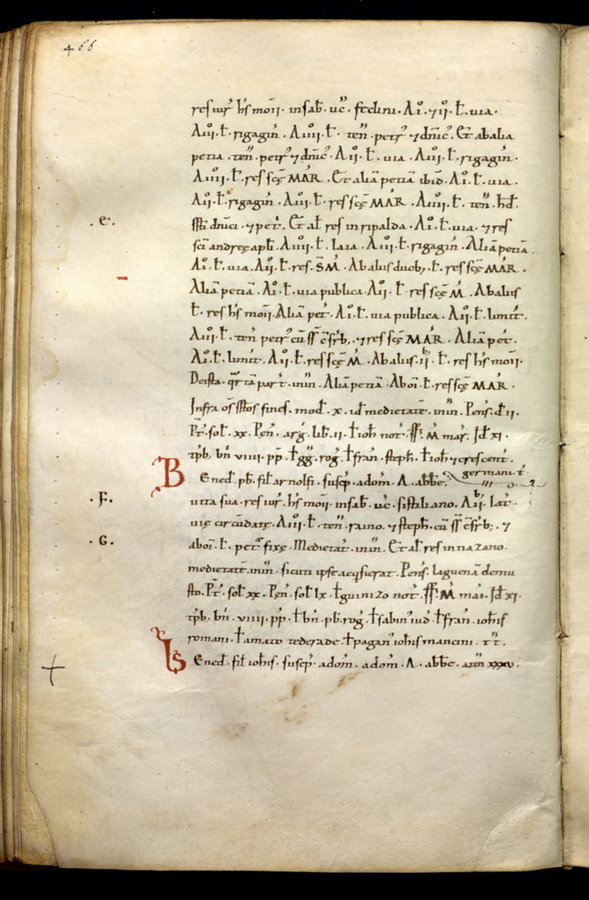 466
res iur̄ hs̄ mon̄ . in sab̄ . uc̄ . fcclini . A.i. 7 ii. ł . uia .
A.iii. ł . rigagin̄ . A.iiii. ł . ten̄ . petr̄ 7 dn̄ic̄ . Et ab alia
petia . ten̄ . petr̄ 7 dn̄ic̄ . A.ii. ł . uia . A.iii. ł . rigagin̄ .
A.iiii. ł . res sc̄ę MAR̄ . Et aliā petiā ibid̄ . A.i. ł . uia .
A.ii. ł . rigagin̄ . A.iii. ł . res sc̄ę MAR̄ . A.iiii. ł . ten̄ . hd̄ .
.E. ss̄ti dn̄ici . 7 pet̄ . Et al̄ res in ripalda . A.i. ł . uia . 7 res
sc̄i andreę apl̄i . A.iiii. ł . laia . A.iii. ł . rigagin̄ . Aliā petiā .
A.i. ł . uia . A.ii. ł . res . S̄ M̄ . Ab alus duob; . ł . res sc̄ę MAR̄ .
Aliā petiā . A.i. ł . uia publica . A.ii. ł . res sc̄ę M̄ . Ab alus
ł . res hs̄ mon̄ . Aliā pet̄ . A.i. ł . uia publica . A.ii. ł . lunit̄ .
A.iii. ł . ten̄ petr̄ cū ss̄ c̄sr̄ib; . 7 res sc̄ę MAR̄ . Aliā pet̄ .
A.i. ł . lunit̄ . A.ii. ł . res sc̄ę M̄ . Ab alus . ii b; . ł . res hs̄ mon̄ .
De ista . qr̄tā part̄ . in in̄ . Aliā petiā . Aboi̅ . ł . res sc̄ę MAR̄ .
Infra os̄ ss̄tos fines . mod̄ . x . id̄ medietatē . in in̄ . Pens̄ . d̄ ii .
Pr̄t . sol̄ . xx . Pen̄ . arḡ . lib̄ . ii . † ioh̄ not̄ . ss̄ . M̄ mar̄ . Id̄ xi .
tp̄b . bn̄ . viiii . pp̄ . † gḡ . roḡ . † fran̄ . steph̄ . † ioh̄ 7 crescent̄ .
germani . t̄ .
Bened̄ . pb̄ . fil̄ arnolfi . suscp̄ . adom̄ . A . abbe .
.F. uita sua . res iur̄ . hs̄ mon̄ in sab̄ . uc̄ . sistiliano . A.ii b; . lat̄ .
uię circūdatę . A.iii. ł . ten̄ . raino . 7 steph̄ . cū ss̄ c̄sr̄b; . 7
.G. aboi̅ . ł . pet̄ fixę . Medietat̄ . in in̄ . Et al̄ res in nazano .
medietatē . in in̄ . sicuti ipse acq̄sierat . Pens̄ . laguenā demu
sto . Pr̄t . sol̄ xx . Pen̄ . sol̄ lx . † guinizo not̄ . ss̄ . M̄ mai . Id̄ xi .
tp̄b . bn̄ . viiii . pp̄ . † bn̄ . pb̄ . roḡ . † sabin̄ iud̄ † fran̄ . ioh̄is
romani . † amato tederade . † pagan̄ ioh̄is mancini . t̄t̄ .
Bened̄ . fil̄ ioh̄is . suscp̄ . adom̄ . adom̄ . A . abbe . ann̄ xxxv .